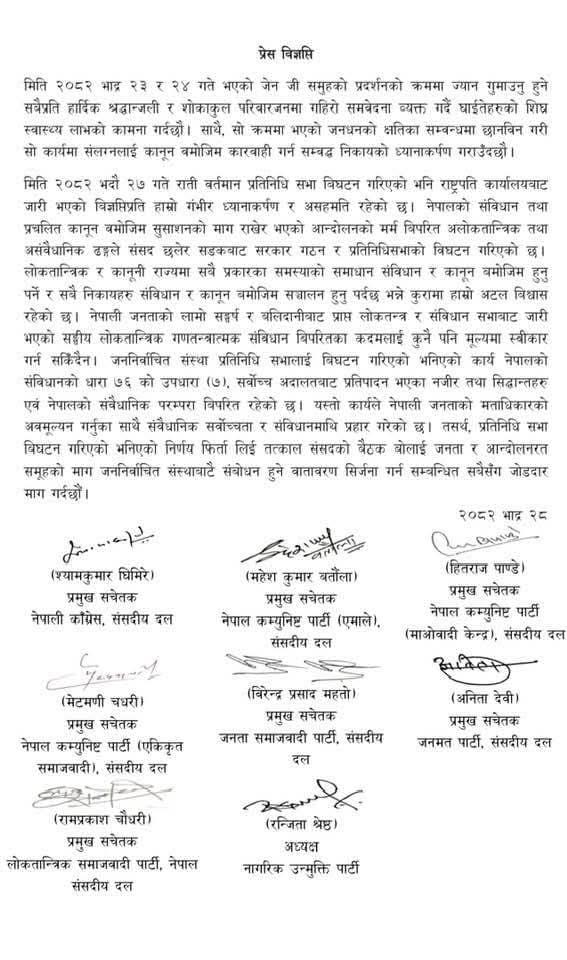 प्रेस विज्ञप्ति
मिति २०८२ भाद्र २३ र २४ गते भएको जेन जी समुहको प्रदर्शनको क्रममा ज्यान गुमाउनु हुने
सबैप्रति हार्दिक श्रद्धान्जली र शोकाकुल परिवारजनमा गहिरो समवेदना व्यक्त गर्दै घाईतेहरुको शिघ्र
स्वास्थ्य लाभको कामना गर्दछौ। साथै, सो क्रममा भएको जनधनको क्षतिका सम्वन्धमा छानविन गरी
सो कार्यमा संलग्नलाई कानून वमोजिम कारवाही गर्न सम्वद्ध निकायको ध्यानाकर्षण गराउँदछौ।
मिति २०८२ भदौ २७ गते राती वर्तमान प्रतिनिधि सभा विघटन गरिएको भनि राष्ट्रपति कार्यालयबाट
जारी भएको विज्ञप्तिप्रति हाम्रो गंभीर ध्यानाकर्षण र असहमति रहेको छ। नेपालको संविधान तथा
प्रचलित कानून वमोजिम सुसाशनको माग राखेर भएको आन्दोलनको मर्म विपरित अलोकतान्त्रिक तथा
असंवैधानिक ढङ्गले संसद छलेर सडकबाट सरकार गठन र प्रतिनिधिसभाको विघटन गरिएको छ।
लोकतान्त्रिक र कानूनी राज्यमा सबै प्रकारका समस्याको समाधान संविधान र कानून वमोजिम हुनु
पर्ने र सबै निकायहरु संविधान र कानून वमोजिम सञ्चालन हुनु पर्दछ भन्ने कुरामा हाम्रो अटल विश्वास
रहेको छ। नेपाली जनताको लामो सङ्घर्ष र बलिदानीबाट प्राप्त लोकतन्त्र र संविधान सभाबाट जारी
भएको सङ्घीय लोकतान्त्रिक गणतन्त्रात्मक संविधान विपरितका कदमलाई कुनै पनि मूल्यमा स्वीकार
गर्न सकिँदैन। जननिर्वाचित संस्था प्रतिनिधि सभालाई विघटन गरिएको भनिएको कार्य नेपालको
संविधानको धारा ७६ को उपधारा (७), सर्वोच्च अदालतबाट प्रतिपादन भएका नजीर तथा सिद्धान्तहरु
एवं नेपालको संवैधानिक परम्परा विपरित रहेको छ। यस्तो कार्यले नेपाली जनताको मताधिकारको
अवमूल्यन गर्नुका साथै संवैधानिक सर्वोच्चता र संविधानमाथि प्रहार गरेको छ। तसर्थ, प्रतिनिधि सभा
विघटन गरिएको भनिएको निर्णय फिर्ता लिई तत्काल संसदको बैठक बोलाई जनता र आन्दोलनरत
समूहको माग जननिर्वाचित संस्थाबाटै संबोधन हुने वातावरण सिर्जना गर्न सम्बन्धित सबैसँग जोडदार
माग गर्दछौं।
२०८२ भाद्र २८
(श्यामकुमार घिमिरे)
प्रमुख सचेतक
नेपाली काँग्रेस, संसदीय दल
(महेश कुमार बर्तौला)
प्रमुख सचेतक
नेपाल कम्युनिष्ट पार्टी (एमाले),
संसदीय दल
(हितराज पाण्डे)
प्रमुख सचेतक
नेपाल कम्युनिष्ट पार्टी
(माओवादी केन्द्र), संसदीय दल
(मेटमणी चधरी)
प्रमुख सचेतक
नेपाल कम्युनिष्ट पार्टी (एकिकृत
समाजवादी), संसदीय दल
(विरेन्द्र प्रसाद महतो)
प्रमुख सचेतक
जनता समाजवादी पार्टी, संसदीय
दल
(अनिता देवी)
प्रमुख सचेतक
जनमत पार्टी, संसदीय दल
(रामप्रकाश चौधरी)
प्रमुख सचेतक
लोकतान्त्रिक समाजवादी पार्टी, नेपाल
संसदीय दल
(रन्जिता श्रेष्ठ)
अध्यक्ष
नागरिक उन्मुक्ति पार्टी